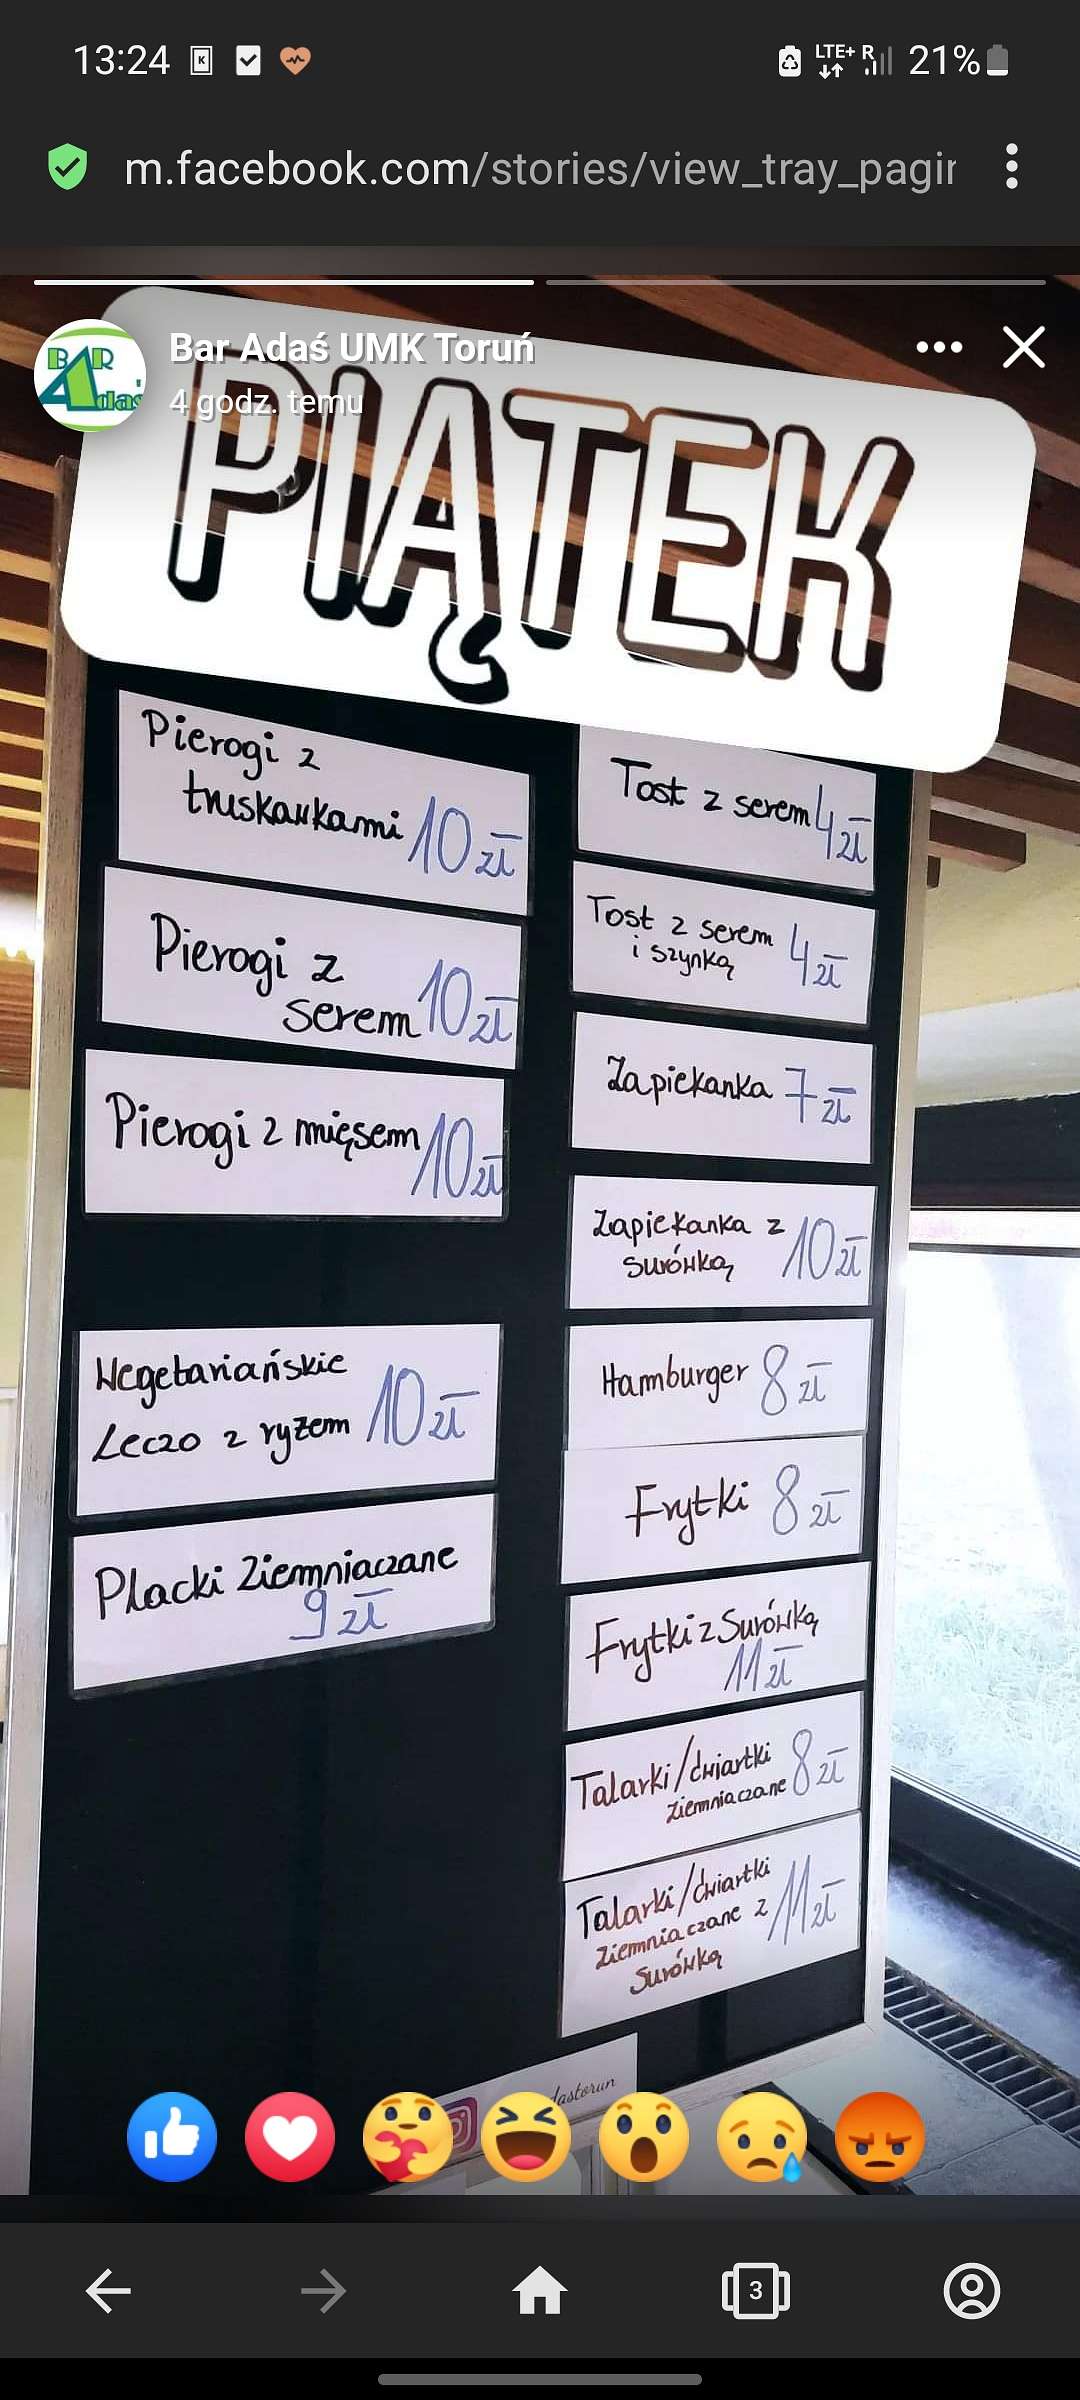 13:24
LTE+ R 21%
m.facebook.com/stories/view_tray_pagin
BAR
Adaś
Bar Adaś UMK Toruń
4 godz. temu
PIĄTEK
Pierogi z
truskawkami 10 zł
Pierogi z
serem 10 zł
Pierogi z mięsem 10 zł
Wegetariańskie
Leczo z ryżem 10 zł
Placki Ziemniaczane
9 zł
Tost z serem 4 zł
Tost z serem
i szynką 4 zł
Zapiekanka 7 zł
Zapiekanka z
surówką 10 zł
Hamburger 8 zł
Frytki 8 zł
Frytki z Surówką
11 zł
Talarki/ćwiartki
ziemniaczane 8 zł
Talarki/ćwiartki
Ziemniaczane z 11 zł
Surówką
dastorun
3